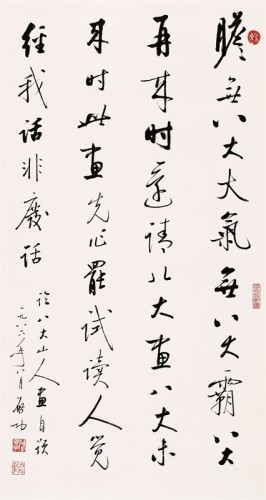 膽無八大大氣無八大霸八大
再来时還請八大畫八大未
来时此畫先作罷試讀人覺
經我話非廢話
八大山人畫自題
一九八六年八月啟功